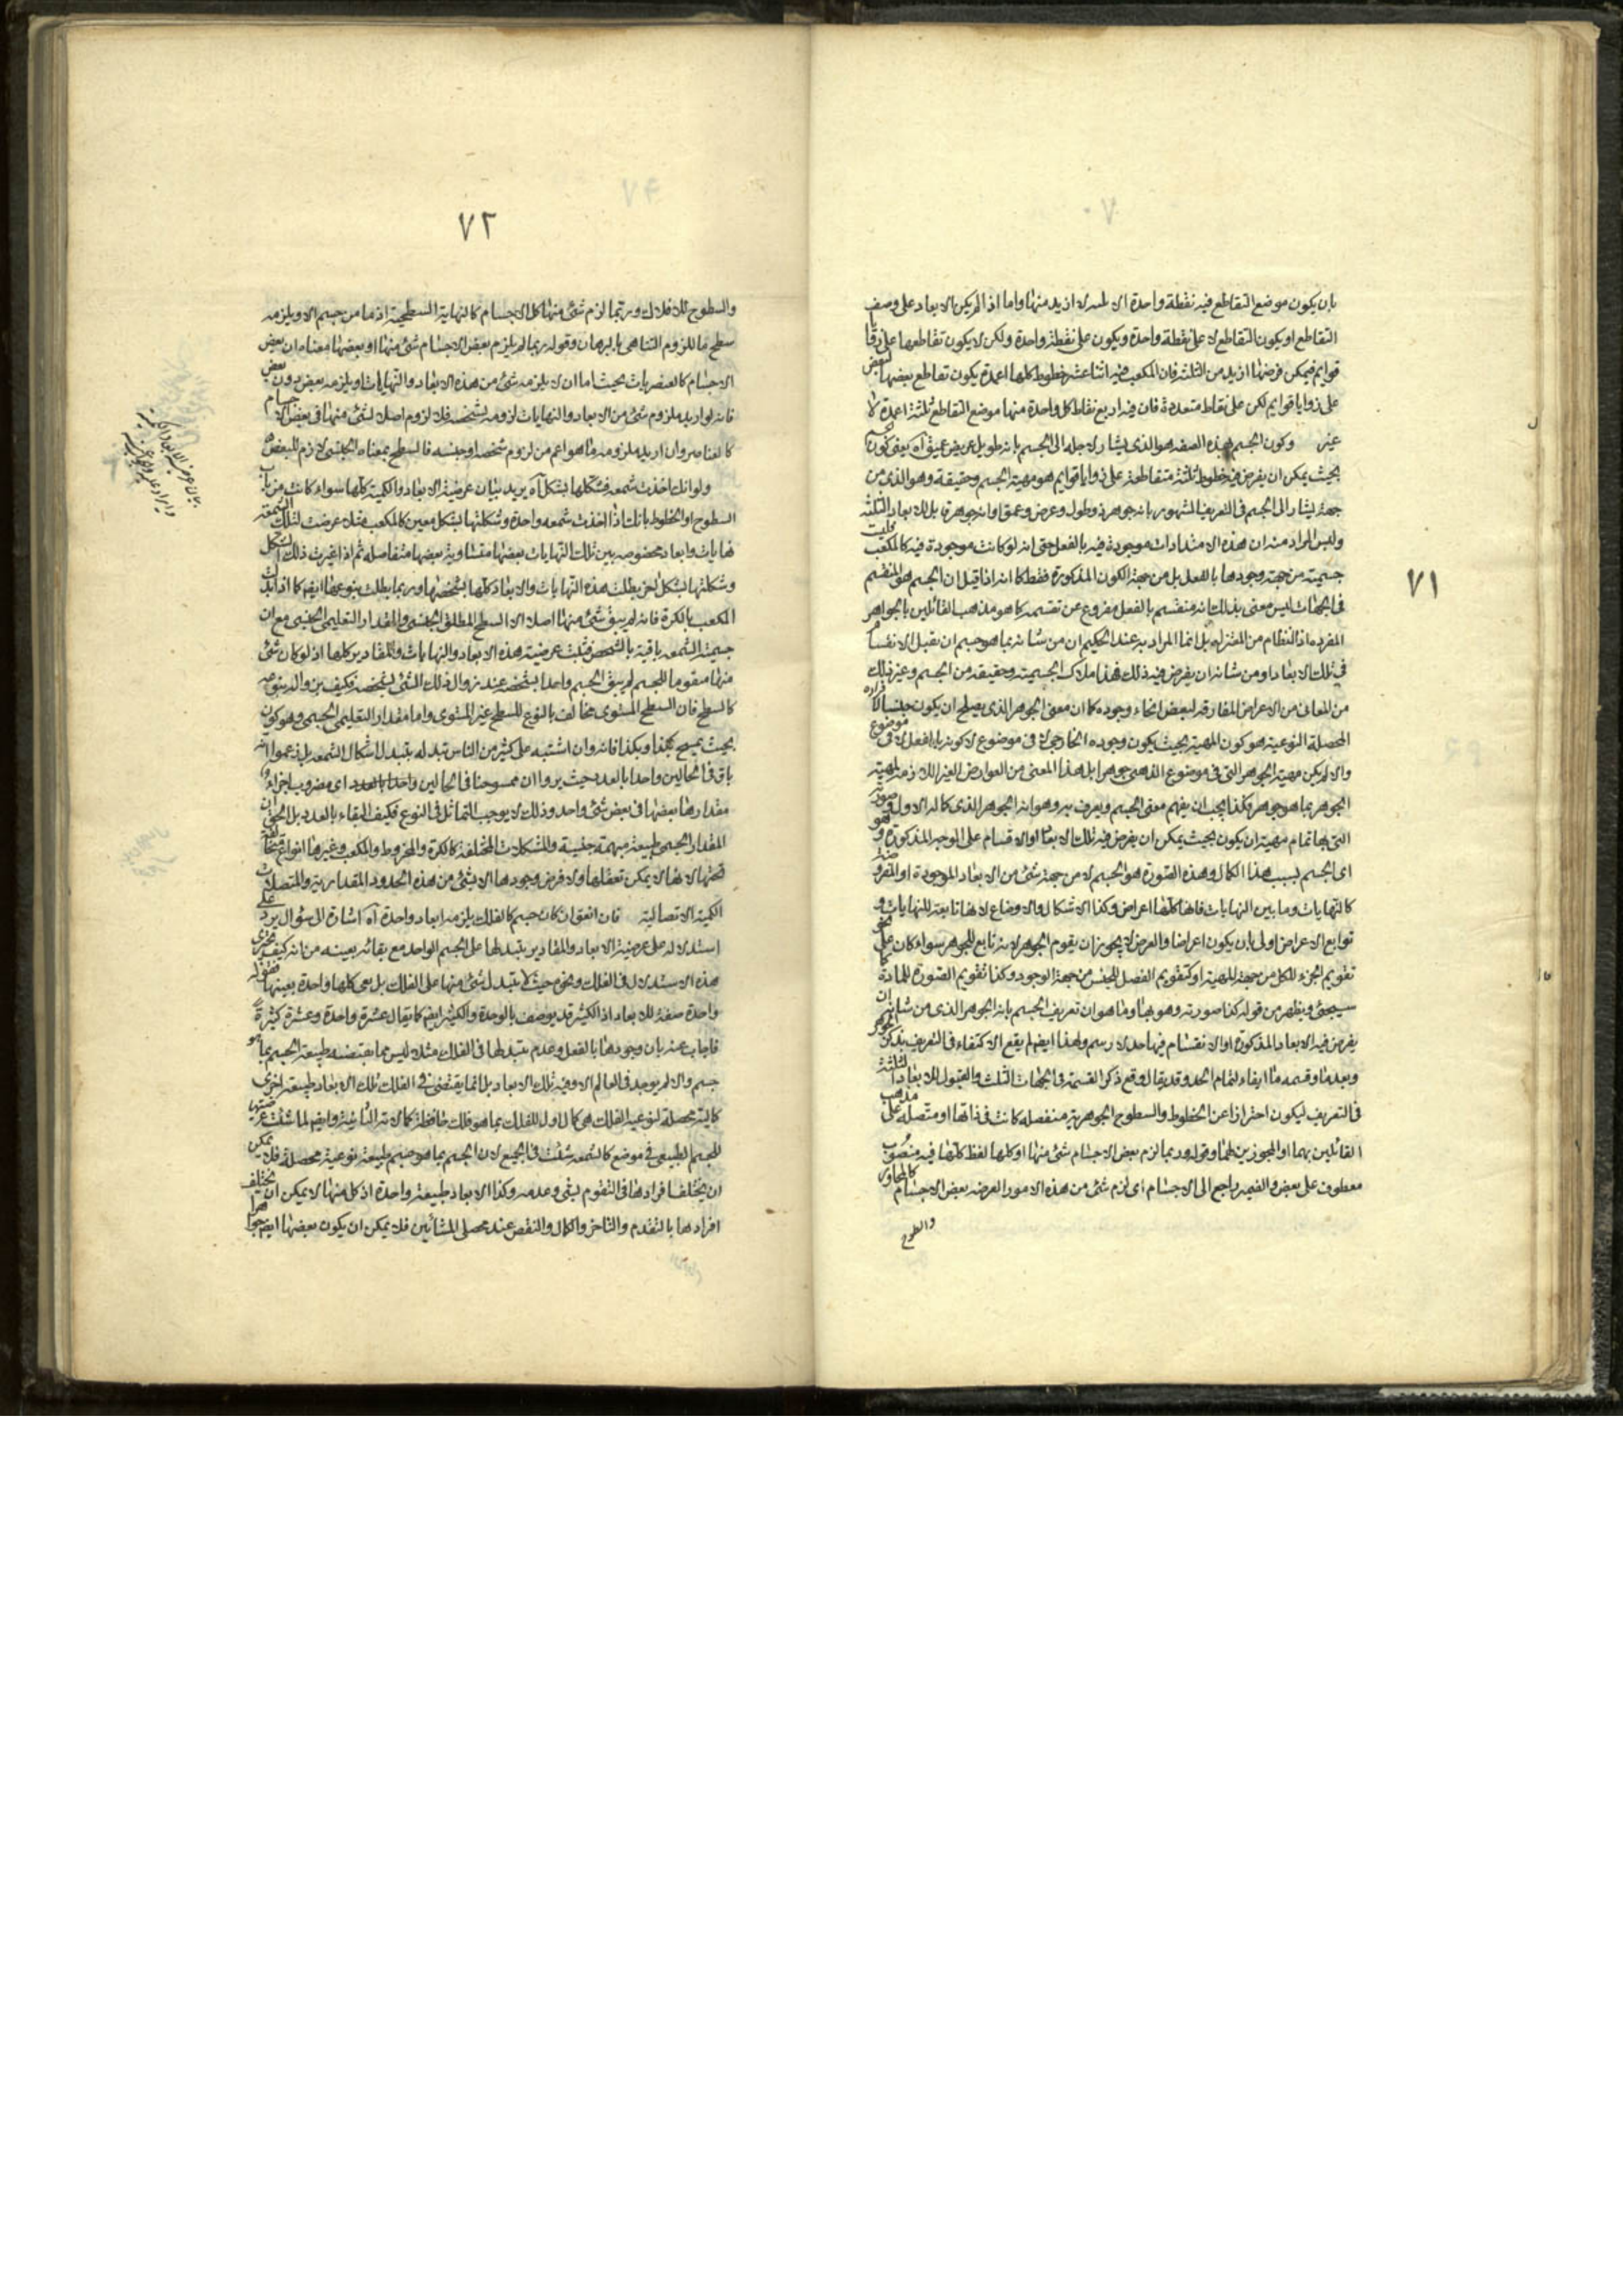 ٧١
بان يكون موضع التقاطع فيه نقطة واحدة الا لازيد منها واما اذا لم يكن بالابعاد على وصف
التقاطع او يكون التقاطع لا على نقطة واحدة ويكون على نقطة واحدة ولكن لا يكون تقاطعها على زوايا
قوايم فيمكن فرضها ازيد من الثلثة فان المكعب فيه اثنا عشر خطوط كلها اعمدة يكون تقاطع بعضها لبعض
على زوايا قوايم لكن على نقاط متعددة فان فيه اربع نقاط كل واحدة منها موضع التقاطع ثلثة اعمدة لا
غير وكون الجسم بهذه الصفة هو الذى يشار لاجله الى الجسم بانه طويل عريض عميق آه يعنى كون
بحيث يمكن ان يفرض فيه خطوط ثلثة متقاطعة على زوايا قوايم هو مهية الجسم وحقيقته وهو الذى من
جهته يشار الى الجسم فى التعريف المشهور بانه جوهر ذو طول وعرض وعمق او انه جوهر قابل للابعاد الثلثة
وليس المراد منه ان هذه الامتدادات موجودة فيه بالفعل حتى انه لو كانت موجودة فيه كالمكعب كانت
جسميته من جهة وجودها بالفعل بل من جهة الكون المذكورة فقط كما انه اذا قيل ان الجسم هو المنقسم
فى الجهات ليس معنى بذلك انه منقسم بالفعل مفروغ عن تقسيمه كما هو مذهب القائلين بالجواهر
المفردة او النظام من المعتزلة بل انما المراد به عند الحكيم ان من شانه بما هو جسم ان يقبل الانقسام
فى تلك الابعاد او من شانه ان يفرض فيه ذلك فهذا ملاك الجسمية وحقيقة من الجسم وغير ذلك
من المعانى من الاعراض المفارقة لبعض انحاء وجوده كما ان معنى الجوهر الذى يصلح ان يكون جنسا لافراده
المحصلة النوعية هو كون المهية بحيث يكون وجوده الخارجى لا فى موضوع لا كونه بالفعل لا فى موضوع
والا لم يكن مهية الجوهر التى فى موضوع الذهن جوهرا بل هذا المعنى من العوارض الغير اللازمة لمهية
الجوهر بما هو جوهر وكذا يجب ان يفهم معنى الجسم ويعرف به وهو انه الجوهر الذى كماله الاول وصورته
التى بها تمام مهيته ان يكون بحيث يمكن ان يفرض فيه تلك الابعاد او الاقسام على الوجه المذكورة وهو
اى الجسم بسبب هذا الكمال وهذه الصورة هو الجسم لا من جهة شئ من الابعاد الموجودة او المفروضة
كالنهايات وما بين النهايات فانها كلها اعراض وكذا الاشكال والاوضاع لانها تابعة للنهايات و
توابع الاعراض اولى بان يكون اعراضا والعرض لا يجوز ان يقوم الجوهر لانه تابع للجوهر سواء كان على نحو
تقويم الجزء للكل من جهة المهية او كتقويم الفصل للجنس من جهة الوجود وكذا تقويم الصورة للمادة كما
سيجئ ويظهر من قوله كذا صورته وهو بها وما هو ان تعريف الجسم بانه الجوهر الذى من شانه ان
يفرض فيه الابعاد المذكورة او الانقسام فيها حد لا رسم ولهذا ايضا لم يقع الاكتفاء فى التعريف بذكر الجوهر
وبعد ما وقسمه ما ايفاء لتمام الحد وقد يقال وقع ذكر القسمة فى الجهات الثلث والقبول للابعاد الثلثة
فى التعريف ليكون احترازا عن الخطوط والسطوح الجوهرية منفصله كانت فى ذاتها او متصلة على مذهب
القائلين بهما او المجوزين لهما وقوله وربما لزم بعض الاجسام شئ منها او كلها لفظ كلها فيه منصوب
معطوف على بعض والضمير راجع الى الاجسام اى لزم شئ من هذه الامور العرضية بعض الاجسام كالمحاور
والسطوح
٧٢
والسطوح للافلاك وربما لزم شئ منها كل الاجسام كالنهاية السطحية اذ ما من جسم الا ويلزمه
سطح ما للزوم التناهى بالبرهان وقوله ربما لم يلزم بعض الاجسام شئ منها او بعضها معناه ان بعض
الاجسام كالعنصريات بحيث اما ان لا يلزمه شئ من هذه الابعاد والنهايات او يلزمه بعض دون بعض
فانه لو اريد ملزوم شئ من الابعاد والنهايات لزومه بشخصه فلا لزوم اصلا لشئ منها فى بعض الاجسام
كالعناصر وان اريد ملزومه ما هو اعم من لزوم شخصه او جنسه فالسطح بمعناه الجنسى لازم للبعض
ولو انك اخذت شمعة فشكلتها بشكل آه يريد بيان عرضية الابعاد والكمية كلها سواء كانت من باب
السطوح او الخطوط بانك اذا اخذت شمعة واحدة وشكلتها بشكل معين كالمكعب مثلا عرضت لتلك الشمعة
نهايات وابعاد مخصوصه بين تلك النهايات بعضها متساوية بعضها متفاصله ثم اذا غيرت ذلك الشكل
وشكلتها بشكل اخر بطلت هذه النهايات والابعاد كلها بشخصها وربما بطلت بنوعها ايضا كما اذا بدلت
المكعب بالكرة فانه لم يبق شئ منها اصلا الا السطح المطلق الجنسى والمقدار التعليمى الجنسى مع ان
جسمية الشمعة باقية بالشخص فثبت عرضية هذه الابعاد والنهايات والمقادير كلها اذ لو كان شئ
منها مقوما للجسم لم يبق الجسم واحدا بشخصه عند زوال ذلك الشئ بشخصه فكيف بزواله بنوعه
كالسطح فان السطح المستوى مخالف بالنوع للسطح غير المستوى واما مقدار التعليمى الجسمى وهو كون
بحيث يمسح بكذا وبكذا فانه وان اشتبه على كثير من الناس تبدله بتبدل اشكال الشمعة بل زعموا انه
باق فى الحالين واحدا بالعدد حيث يروا ان ممسوحنا فى الحالين واحدا بالعدد اى مضروب اجزاء
مقدارها بعضها فى بعض شئ واحد وذلك لا يوجب التماثل فى النوع فكيف البقاء بالعدد بل الحق ان
المقدار الجسمى طبيعة مبهمة جنسية والمتشكلات المختلفة كالكرة والمخروط والمكعب وغيرها انواع
تحتها لانها لا يمكن تعقلها ولا فرض وجودها الا بشئ من هذه الحدود المقدارية والمتصلات
الكمية الاتصالية فان اتفق ان كان جسم كالفلك يلزمه ابعاد واحدة آه اشارة الى سؤال يرد على
استدلاله على عرضية الابعاد والمقادير بتبدلها على الجسم الواحد مع بقائه بعينه من انه كيف يجرى
هذه الاستدلال فى الفلك ونحوه حيث لا يتبدل شئ منها على الفلك بل هى كلها واحدة بعينها فقوله
واحدة صفة للابعاد اذ الكثير قد يوصف بالوحدة والكثير ايضا كما يقال عشرة واحدة وعشرة كثيرة
فاجاب عنه بان وجودها بالفعل وعدم تبدلها فى الفلك مثلا ليس مما يقتضيه طبيعة الجسم بما هو
جسم والا لم يوجد فى العالم الا وفيه تلك الابعاد بل انما يقتضى فى الفلك تلك الابعاد طبيعة اخرى
كمالية محصلة لنوعية الفلك هى كمال اول للفلك بما هو فلك حافظة كمالاته الثانية وايضا لما ثبت عرضيتها
للجسم الطبيعى فى موضع كالشمعة ثبتت فى الجميع لان الجسم بما هو جسم طبيعة نوعية محصلة فلا يمكن
ان يختلف افرادها فى التقوم بشئ وعدمه وكذا الابعاد طبيعة واحدة اذ كل منها لا يمكن ان يختلف
افرادها بالتقدم والتاخر والكمال والنقص عند محصلى المشائين فلا يمكن ان يكون بعضها ايضا جوهرا